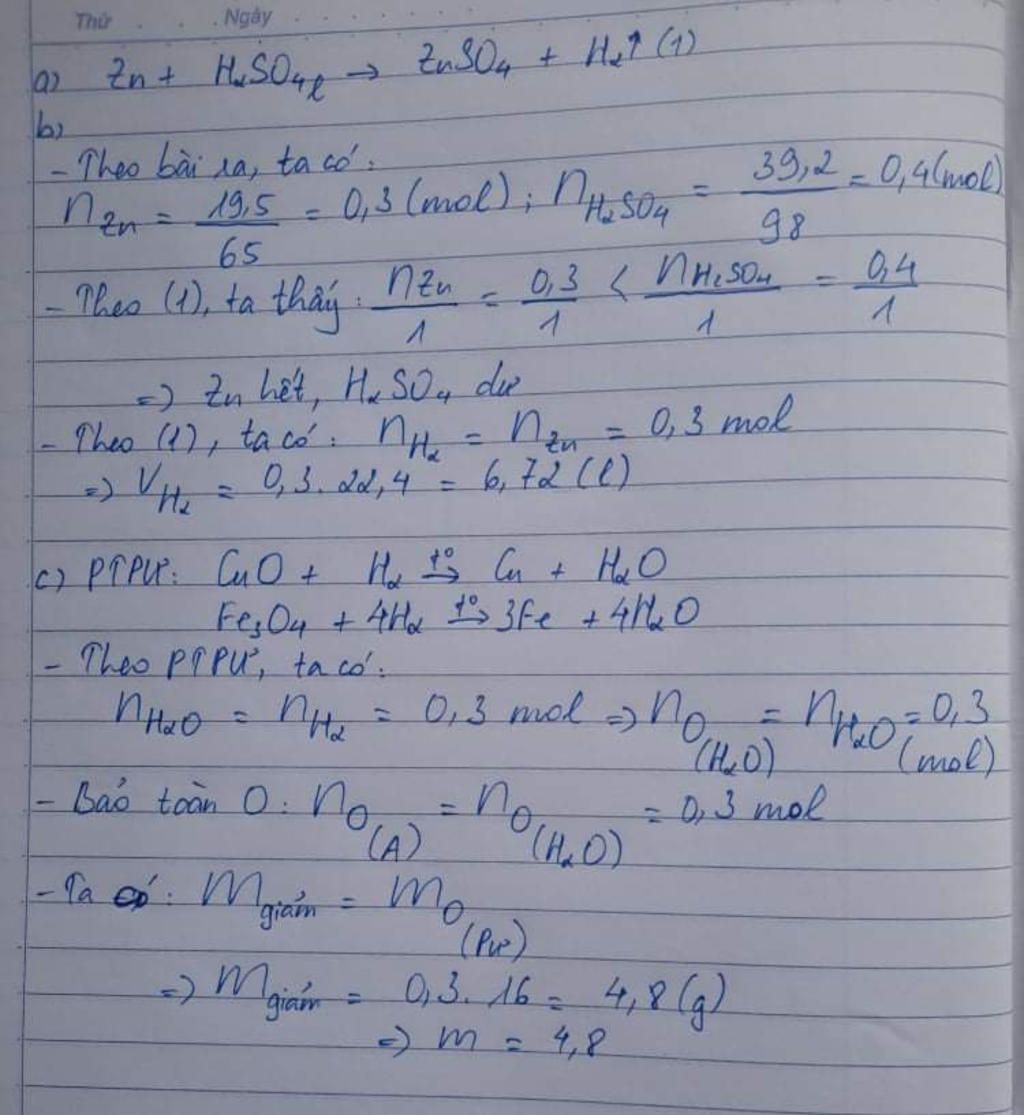 Thứ . . . Ngày . . . . . . .
a) Zn + H₂SO₄ₗ → ZnSO₄ + H₂↑ (1)
b)
- Theo bài ra, ta có:
n_Zn = 19,5/65 = 0,3 (mol); n_H₂SO₄ = 39,2/98 = 0,4 (mol)
- Theo (1), ta thấy: n_Zn/1 = 0,3/1 < n_H₂SO₄/1 = 0,4/1
=> Zn hết, H₂SO₄ dư
- Theo (1), ta có: n_H₂ = n_Zn = 0,3 mol
=> V_H₂ = 0,3.22,4 = 6,72 (l)
c) PTPƯ: CuO + H₂ t°→ Cu + H₂O
Fe₃O₄ + 4H₂ t°→ 3Fe + 4H₂O
- Theo PTPƯ, ta có:
n_H₂O = n_H₂ = 0,3 mol => n_O (H₂O) = n_H₂O = 0,3 (mol)
- Bảo toàn O: n_O (A) = n_O (H₂O) = 0,3 mol
- Ta có: m_giảm = m_O (Pư)
=> m_giảm = 0,3.16 = 4,8 (g)
=> m = 4,8